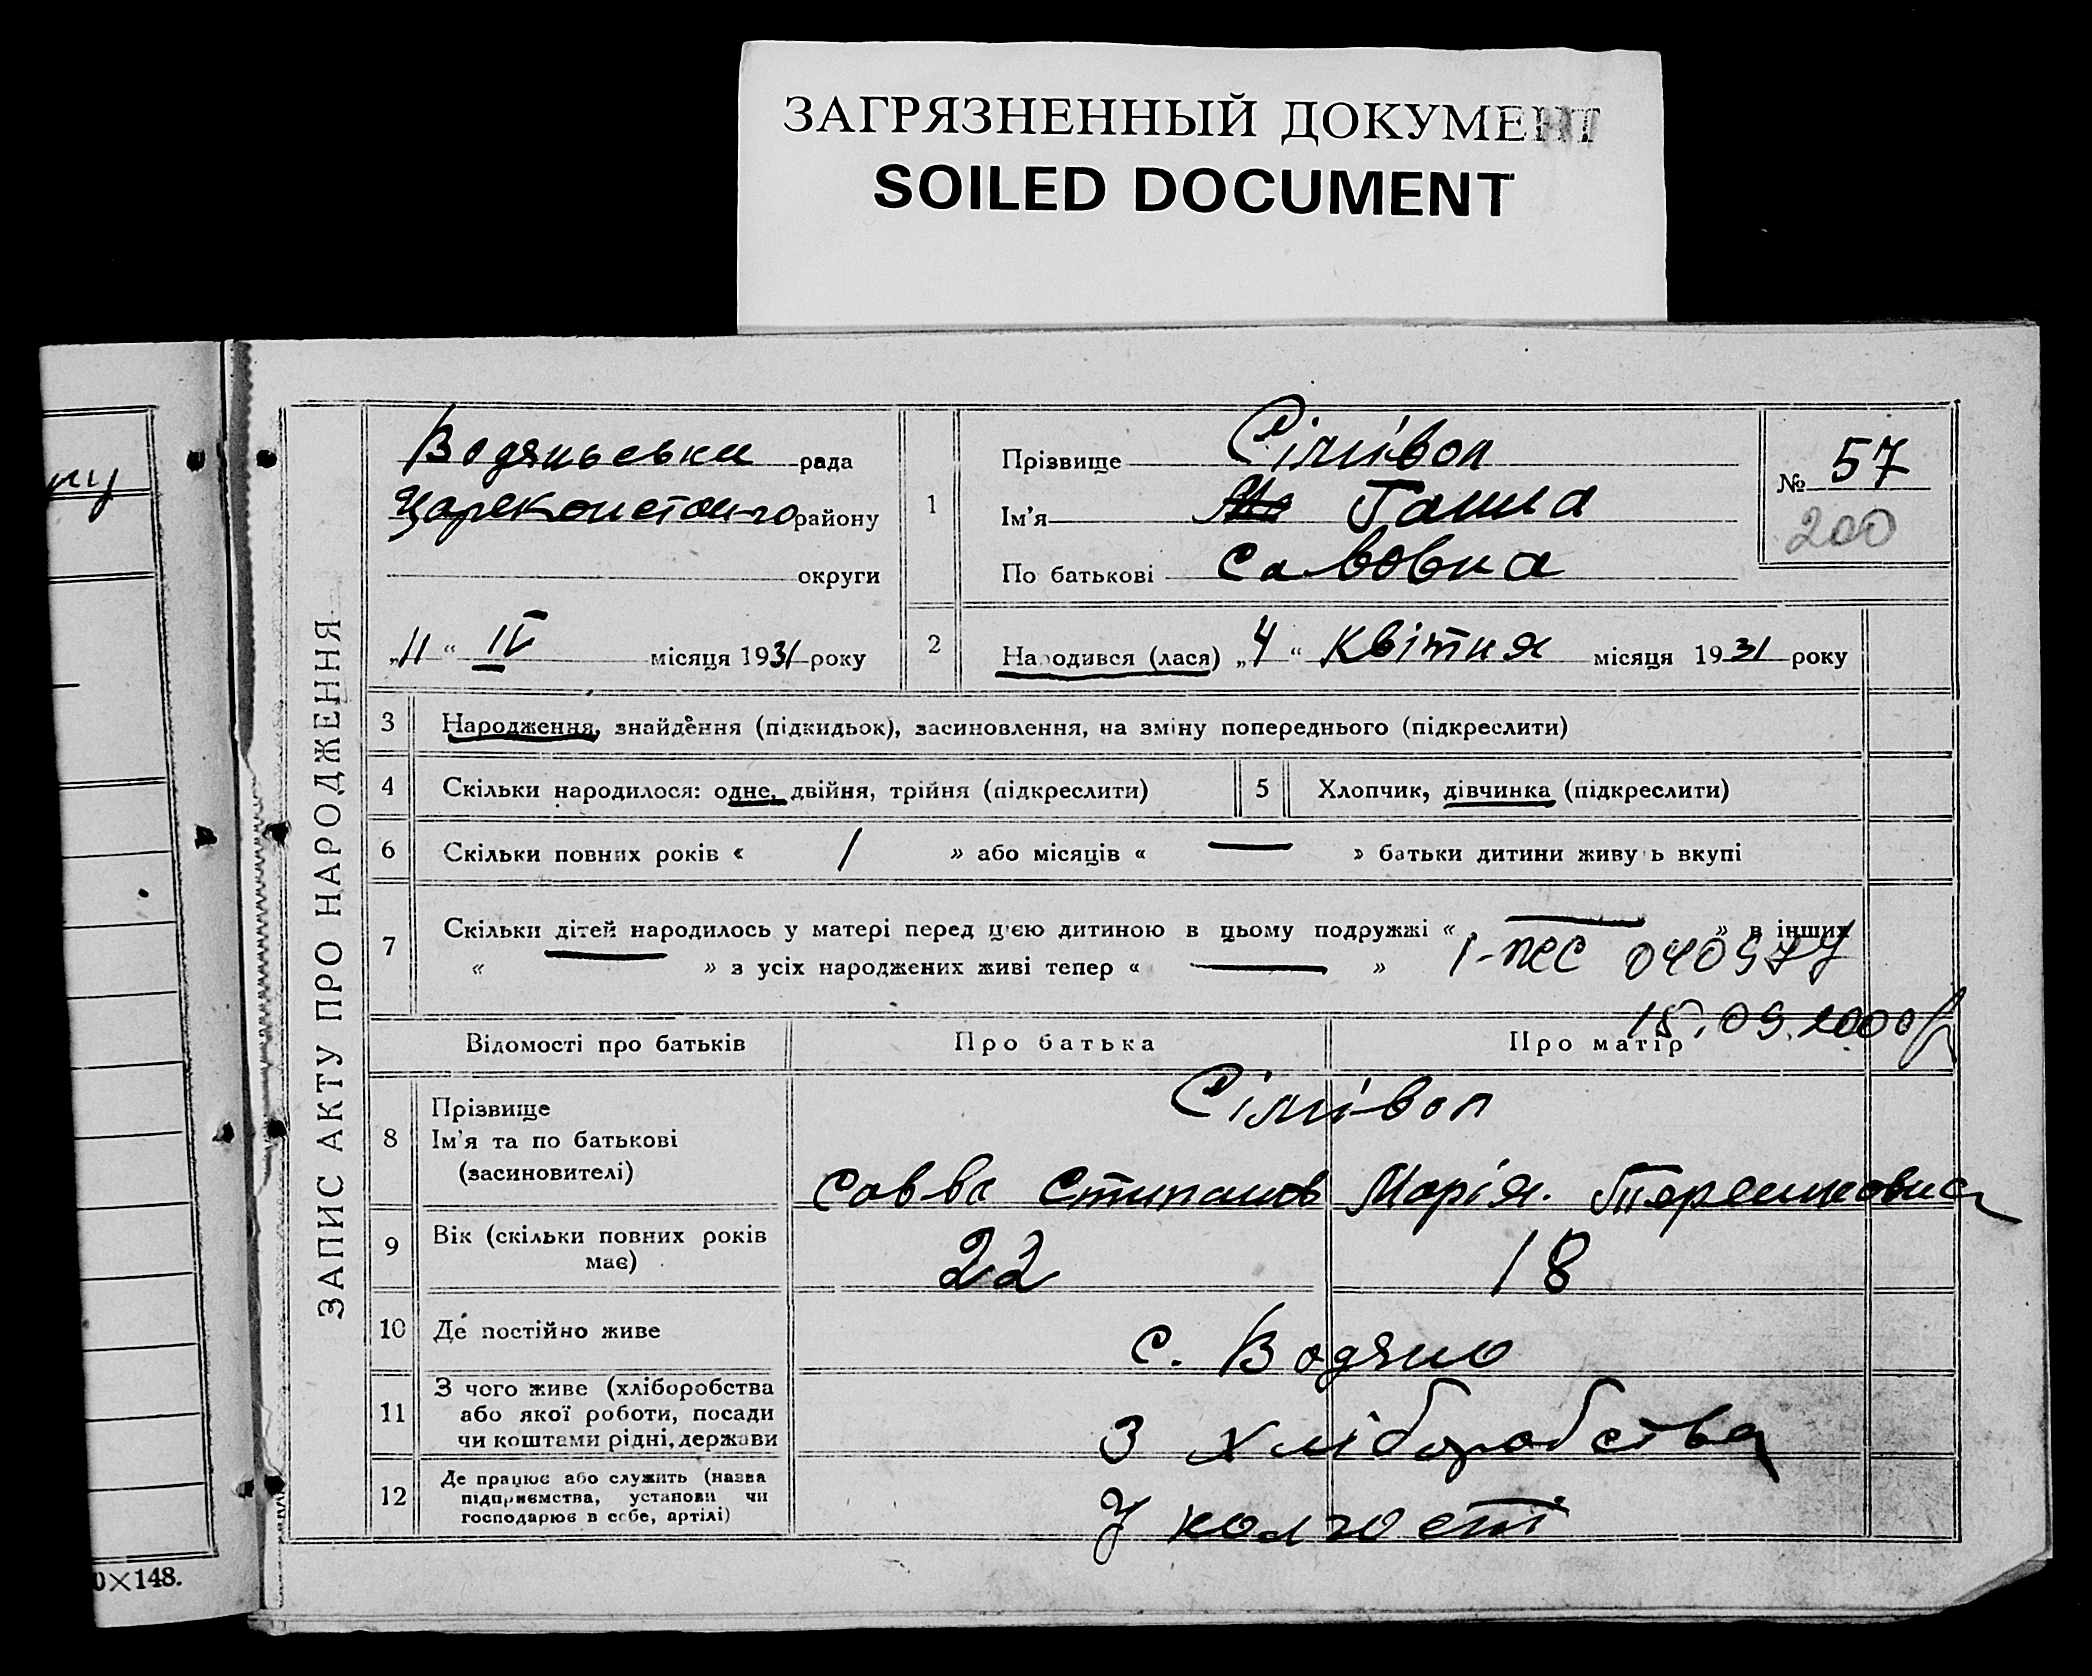 ЗАГРЯЗНЕННЫЙ ДОКУМЕНТ
SOILED DOCUMENT
ЗАПИС АКТУ ПРО НАРОДЖЕННЯ
Водяньськи рада
Царекостан-го району
округи
„11“ IV місяця 1931 року
1
Прізвище Сілівоп
Ім'я Ганна
По батькові Савовна
№ 57
200
2
Народився (лася) „4“ Квітня місяця 1931 року
3 Народження, знайдення (підкидьок), засиновлення, на зміну попереднього (підкреслити)
4 Скільки народилося: одне, двійня, трійня (підкреслити)
5 Хлопчик, дівчинка (підкреслити)
6 Скільки повних років « 1 » або місяців « — » батьки дитини живуть вкупі
7 Скільки дітей народилось у матері перед цією дитиною в цьому подружжі « — » в інших
« — » з усіх народжених живі тепер « — »
040577
15.09.2000
Відомості про батьків Про батька Про матір
8 Прізвище
Ім'я та по батькові
(засиновителі)
Сілівоп
Савва Стипанов Марія
9 Вік (скільки повних років
має)
22 18
10 Де постійно живе
с. Водяно
11 З чого живе (хліборобства
або якої роботи, посади
чи коштами рідні, держави
З хліборобства
12 Де працює або служить (назва
підприємства, установи чи
господарює в себе, артілі)
У колгості
0×148.